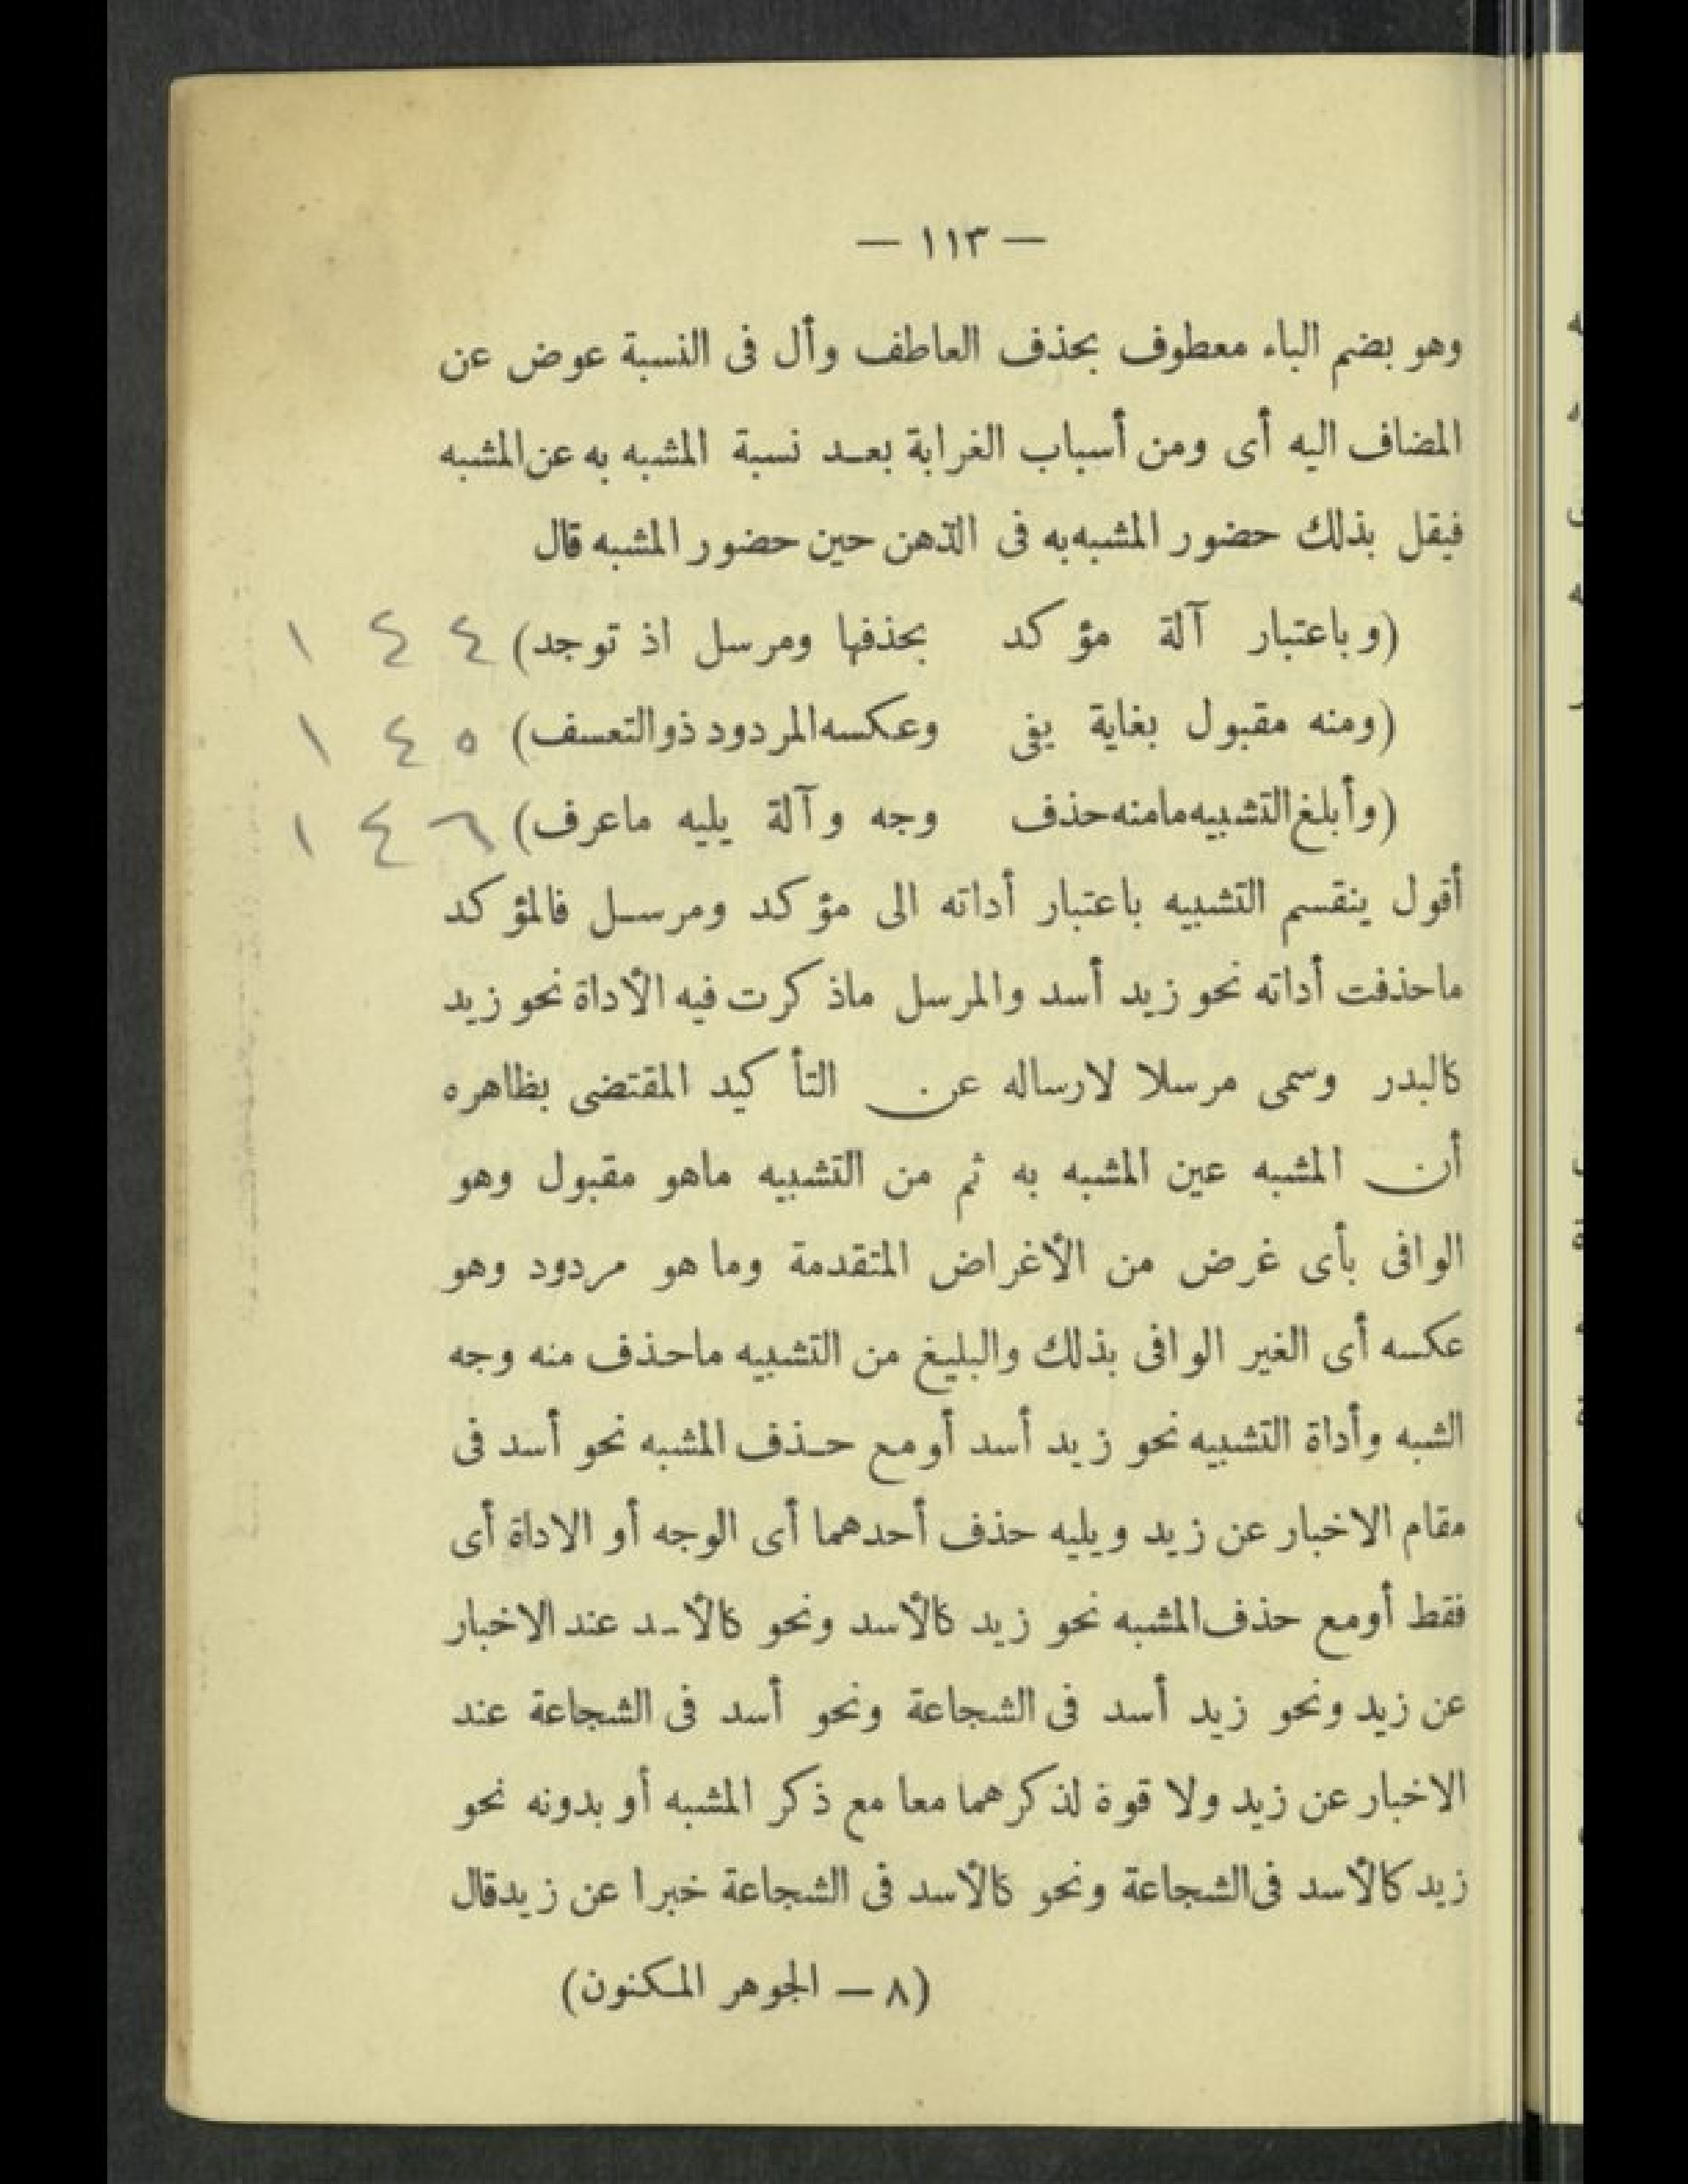 — ١١٣ —
وهو بضم الباء معطوف بحذف العاطف وأل فى النسبة عوض عن
المضاف اليه أى ومن أسباب الغرابة بعد نسبة المشبه به عن المشبه
فيقل بذلك حضور المشبه به فى الذهن حين حضور المشبه قال
(وباعتبار آلة مؤكد بحذفها ومرسل اذ توجد) ١٤٤
(ومنه مقبول بغاية يفى وعكسه المردود ذو التعسف) ١٤٥
(وأبلغ التشبيه مامنه حذف وجه وآلة يليه ماعرف) ١٤٦
أقول ينقسم التشبيه باعتبار أداته الى مؤكد ومرسل فالمؤكد
ماحذفت أداته نحو زيد أسد والمرسل ماذكرت فيه الأداة نحو زيد
كالبدر وسمى مرسلا لارساله عن التأكيد المقتضى بظاهره
أن المشبه عين المشبه به ثم من التشبيه ماهو مقبول وهو
الوافى بأى غرض من الأغراض المتقدمة وما هو مردود وهو
عكسه أى الغير الوافى بذلك والبليغ من التشبيه ماحذف منه وجه
الشبه وأداة التشبيه نحو زيد أسد أو مع حذف المشبه نحو أسد فى
مقام الاخبار عن زيد ويليه حذف أحدهما أى الوجه أو الاداة أى
فقط أو مع حذف المشبه نحو زيد كالأسد ونحو كالأسد عند الاخبار
عن زيد ونحو زيد أسد فى الشجاعة ونحو أسد فى الشجاعة عند
الاخبار عن زيد ولا قوة لذكرهما معا مع ذكر المشبه أو بدونه نحو
زيد كالأسد فى الشجاعة ونحو كالأسد فى الشجاعة خبرا عن زيد قال
(٨ — الجوهر المكنون)